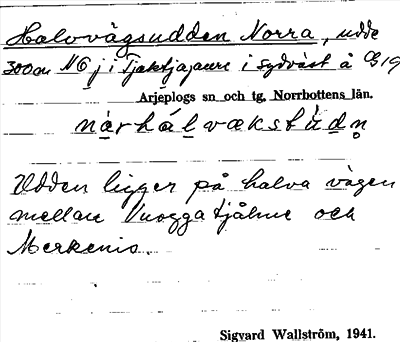 Halvvägsudden Norra, udde
300 m NO i Tjaktjajaure i sydväst å G 19
Arjeplogs sn och tg, Norrbottens län.
nårhálvækstùdn̥
Udden ligger på halva vägen
mellan Vuoggatjålme och
Merkenis.
Sigvard Wallström, 1941.